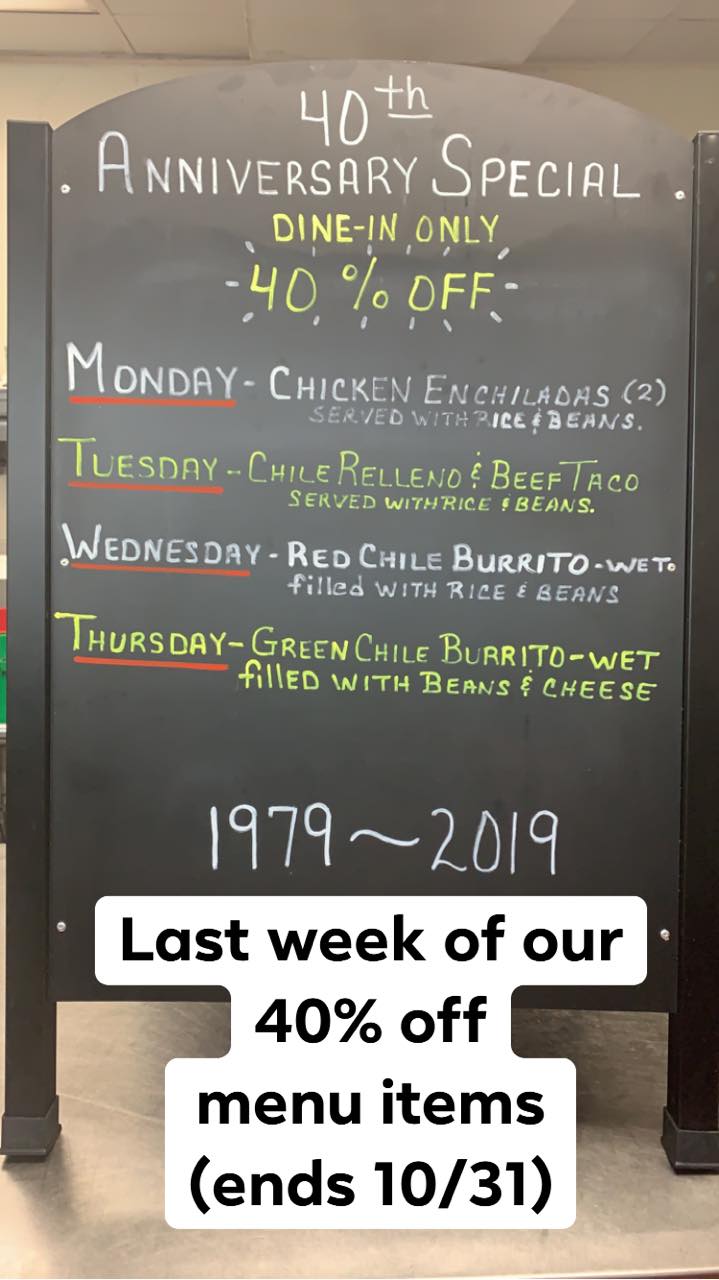 40th
ANNIVERSARY SPECIAL
DINE-IN ONLY
-40 % OFF-
MONDAY- CHICKEN ENCHILADAS (2)
SERVED WITH RICE & BEANS.
TUESDAY -- CHILE RELLENO & BEEF TACO
SERVED WITH RICE & BEANS.
WEDNESDAY - RED CHILE BURRITO-WET.
filled WITH RICE & BEANS
THURSDAY- GREEN CHILE BURRITO-WET
fillED WITH BEANS & CHEESE
1979~2019
Last week of our
40% off
menu items
(ends 10/31)